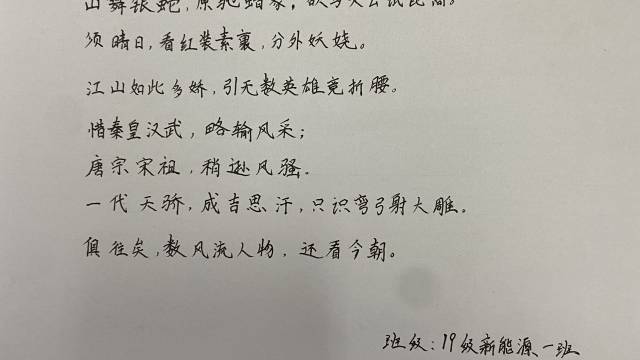 山舞银蛇，原驰蜡象，欲与天公试比高。
须晴日，看红装素裹，分外妖娆。
江山如此多娇，引无数英雄竞折腰。
惜秦皇汉武，略输风采；
唐宗宋祖，稍逊风骚．
一代天骄，成吉思汗，只识弯弓射大雕。
俱往矣，数风流人物，还看今朝。
班级：19级新能源一班